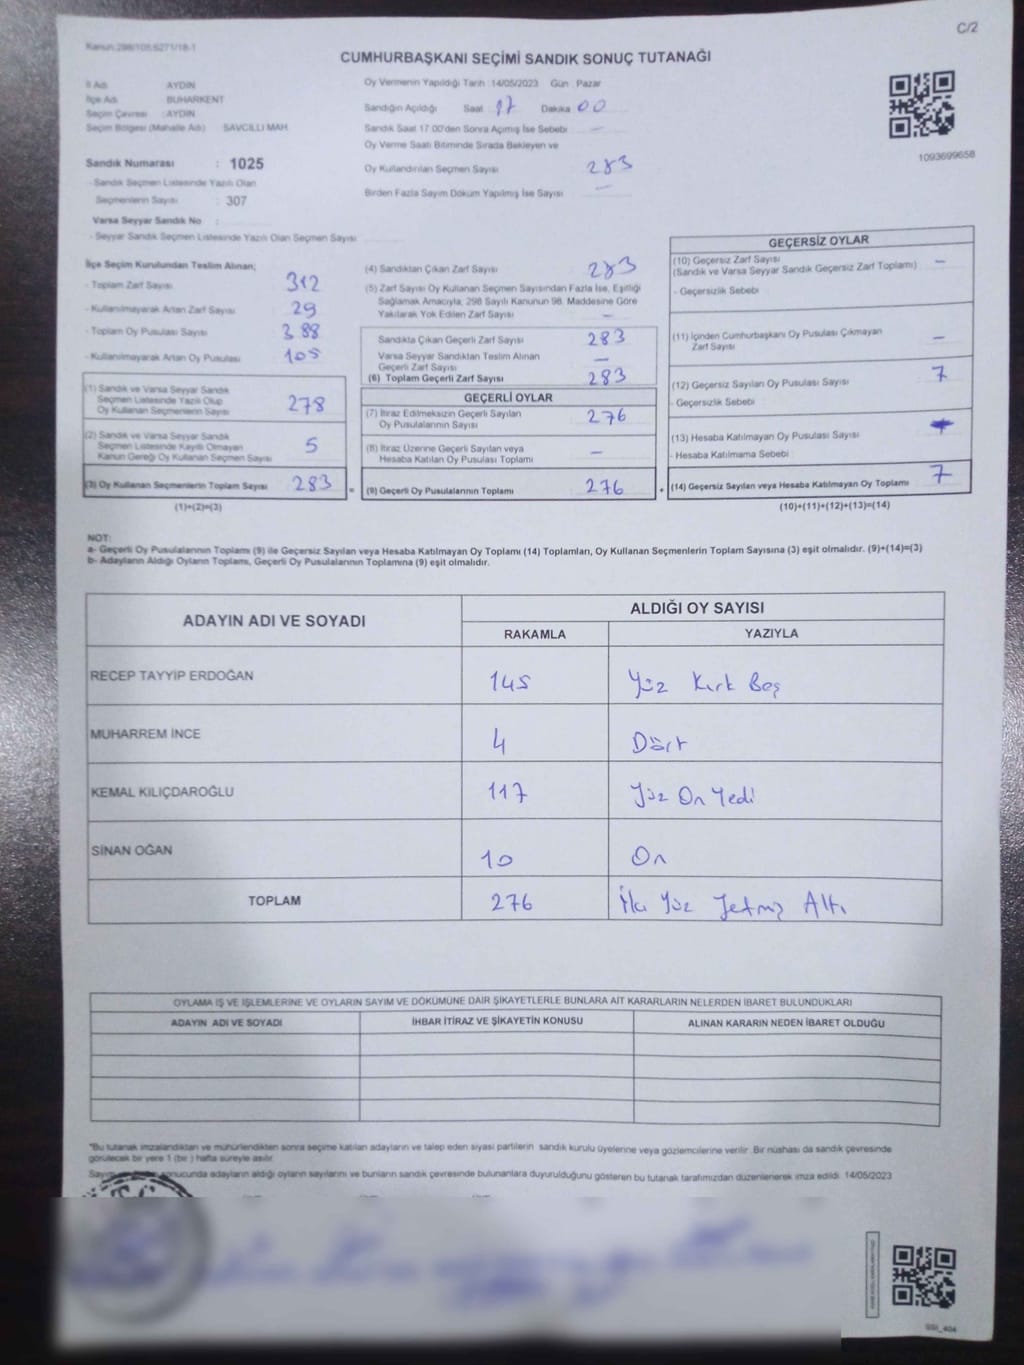 C/2
Kanun:298/108;6271/18-1
CUMHURBAŞKANI SEÇİMİ SANDIK SONUÇ TUTANAĞI
İl Adı AYDIN
İlçe Adı BUHARKENT
Seçim Çevresi : AYDIN
Seçim Bölgesi (Mahalle Adı) SAVCILLI MAH.
Sandık Numarası : 1025
- Sandık Seçmen Listesinde Yazılı Olan
Seçmenlerin Sayısı : 307
Varsa Seyyar Sandık No :
- Seyyar Sandık Seçmen Listesinde Yazılı Olan Seçmen Sayısı
Oy Vermenin Yapıldığı Tarih : 14/05/2023 Gün : Pazar
Sandığın Açıldığı Saat 17 Dakika 00
Sandık Saat 17.00'den Sonra Açımış İse Sebebi -
Oy Verme Saati Bitiminde Sırada Bekleyen ve
Oy Kullandırılan Seçmen Sayısı 283
Birden Fazla Sayım Döküm Yapılmış İse Sayısı -
1093699658
İlçe Seçim Kurulundan Teslim Alınan;
- Toplam Zarf Sayısı 312
- Kullanılmayarak Artan Zarf Sayısı 29
- Toplam Oy Pusulası Sayısı 388
- Kullanılmayarak Artan Oy Pusulası 105
(1) Sandık ve Varsa Seyyar Sandık
Seçmen Listesinde Yazılı Olup
Oy Kullanan Seçmenlerin Sayısı 278
(2) Sandık ve Varsa Seyyar Sandık
Seçmen Listesinde Kayıtlı Olmayan
Kanun Gereği Oy Kullanan Seçmen Sayısı 5
(3) Oy Kullanan Seçmenlerin Toplam Sayısı 283 =
(1)+(2)=(3)
(4) Sandıktan Çıkan Zarf Sayısı 283
(5) Zarf Sayısı Oy Kullanan Seçmen Sayısından Fazla İse, Eşitliği
Sağlamak Amacıyla, 298 Sayılı Kanunun 98. Maddesine Göre
Yakılarak Yok Edilen Zarf Sayısı -
Sandıkta Çıkan Geçerli Zarf Sayısı 283
Varsa Seyyar Sandıktan Teslim Alınan
Geçerli Zarf Sayısı -
(6) Toplam Geçerli Zarf Sayısı 283
GEÇERLİ OYLAR
(7) İtiraz Edilmeksizin Geçerli Sayılan
Oy Pusulalarının Sayısı 276
(8) İtiraz Üzerine Geçerli Sayılan veya
Hesaba Katılan Oy Pusulası Toplamı -
(9) Geçerli Oy Pusulalarının Toplamı 276 +
GEÇERSİZ OYLAR
(10) Geçersiz Zarf Sayısı -
(Sandık ve Varsa Seyyar Sandık Geçersiz Zarf Toplamı)
- Geçersizlik Sebebi
(11) İçinden Cumhurbaşkanı Oy Pusulası Çıkmayan
Zarf Sayısı -
(12) Geçersiz Sayılan Oy Pusulası Sayısı 7
- Geçersizlik Sebebi
(13) Hesaba Katılmayan Oy Pusulası Sayısı
- Hesaba Katılmama Sebebi
(14) Geçersiz Sayılan veya Hesaba Katılmayan Oy Toplamı 7
(10)+(11)+(12)+(13)=(14)
NOT:
a- Geçerli Oy Pusulalarının Toplamı (9) ile Geçersiz Sayılan veya Hesaba Katılmayan Oy Toplamı (14) Toplamları, Oy Kullanan Seçmenlerin Toplam Sayısına (3) eşit olmalıdır. (9)+(14)=(3)
b- Adayların Aldığı Oyların Toplamı, Geçerli Oy Pusulalarının Toplamına (9) eşit olmalıdır.
ADAYIN ADI VE SOYADI
ALDIĞI OY SAYISI
RAKAMLA YAZIYLA
RECEP TAYYİP ERDOĞAN 145 Yüz Kırk Beş
MUHARREM İNCE 4 Dört
KEMAL KILIÇDAROĞLU 117 Yüz On Yedi
SİNAN OĞAN 10 On
TOPLAM 276 İki Yüz Yetmiş Altı
OYLAMA İŞ VE İŞLEMLERİNE VE OYLARIN SAYIM VE DÖKÜMÜNE DAİR ŞİKAYETLERLE BUNLARA AİT KARARLARIN NELERDEN İBARET BULUNDUKLARI
ADAYIN ADI VE SOYADI İHBAR İTİRAZ VE ŞİKAYETİN KONUSU ALINAN KARARIN NEDEN İBARET OLDUĞU
*Bu tutanak imzalandıktan ve mühürlendikten sonra seçime katılan adayların ve talep eden siyasi partilerin sandık kurulu üyelerine veya gözlemcilerine verilir. Bir nüshası da sandık çevresinde
görülecek bir yere 1 (bir ) hafta süreyle asılır.
Sayım sonucunda adayların aldığı oyların sayılarını ve bunların sandık çevresinde bulunanlara duyurulduğunu gösteren bu tutanak tarafımızdan düzenlenerek imza edildi. 14/05/2023
SSI_404